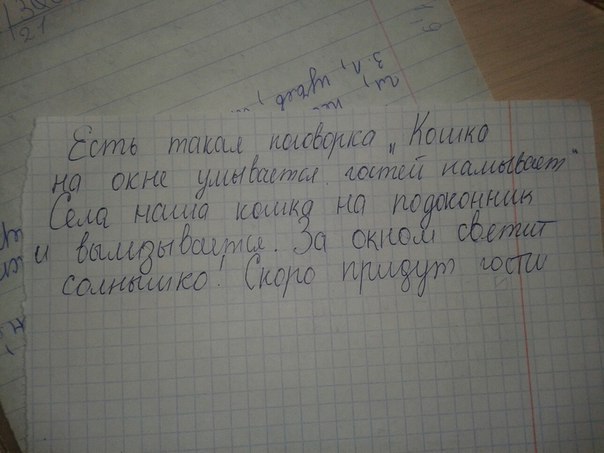 Есть такая поговорка „Кошка
на окне умывается гостей намывает"
Села наша кошка на подоконник
и вылизывается. За окном светит
солнышко! Скоро придут гости